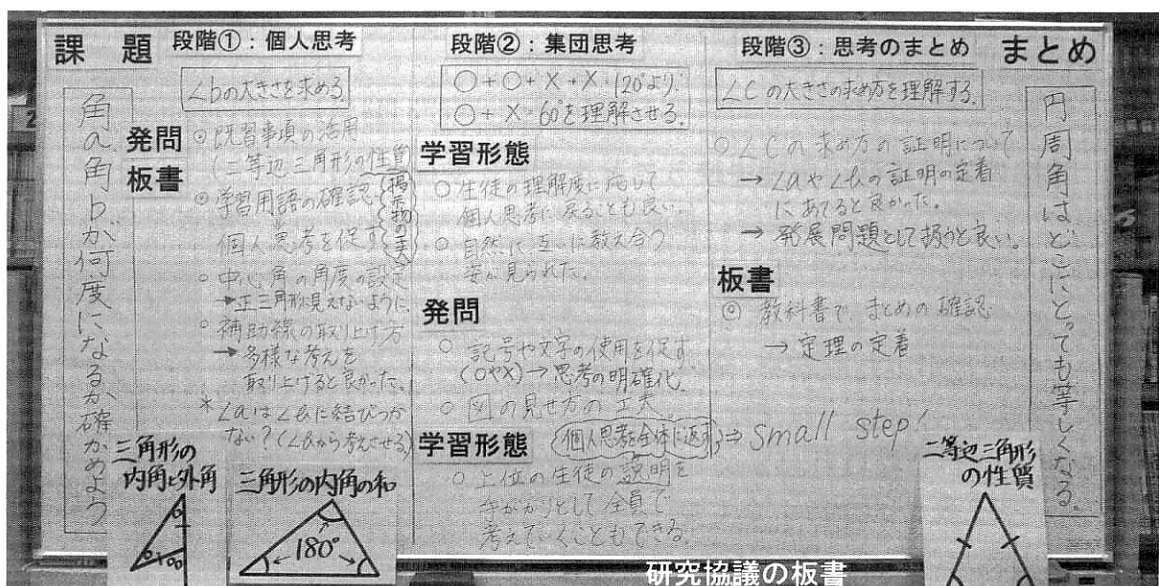 課題
角a、角bが何度になるか確かめよう
段階①：個人思考
∠bの大きさを求める。
発問
板書
◎既習事項の活用
(二等辺三角形の性質
◎学習用語の確認
掲示物の工夫
個人思考を促す
○中心角の角度の設定
→正三角形に見えないように
○補助線の取り上げ方
→多様な考えを
取り上げると良かった。
*∠aは∠bに結びつか
ない？(∠bから考えさせる)
三角形の
内角と外角
三角形の内角の和
180°
段階②：集団思考
○+○+×+×=120°より、
○+×=60°を理解させる。
学習形態
○生徒の理解度に応じて
個人思考に戻ることも良い。
○自然に互いに教え合う
姿が見られた。
発問
○記号や文字の使用を促す
(○や×)→思考の明確化
○図の見せ方の工夫
学習形態
個人思考を全体に返す
⇒small step!
○上位の生徒の説明を
手がかりとして全員で
考えていくこともできる。
段階③：思考のまとめ
∠Cの大きさの求め方を理解する。
○∠Cの求め方の証明について
→∠aや∠bの証明の定着
にあてると良かった。
→発展問題として扱うと良い。
板書
◎教科書で、まとめの確認
→定理の定着
まとめ
円周角はどこにとっても等しくなる。
二等辺三角形
の性質
研究協議の板書